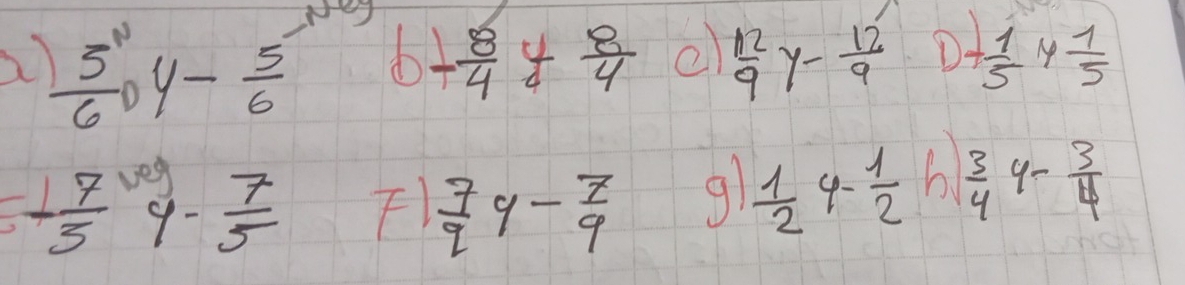 a) 5/6 N D y - 5/6 - Neg b) - 8/4 y 8/4 c) 12/9 y - 12/9 D) - 1/5 y 1/5
E) - 7/5 neg y - 7/5 F) 7/9 y - 7/9 g) 1/2 y - 1/2 h) 3/4 y - 3/4